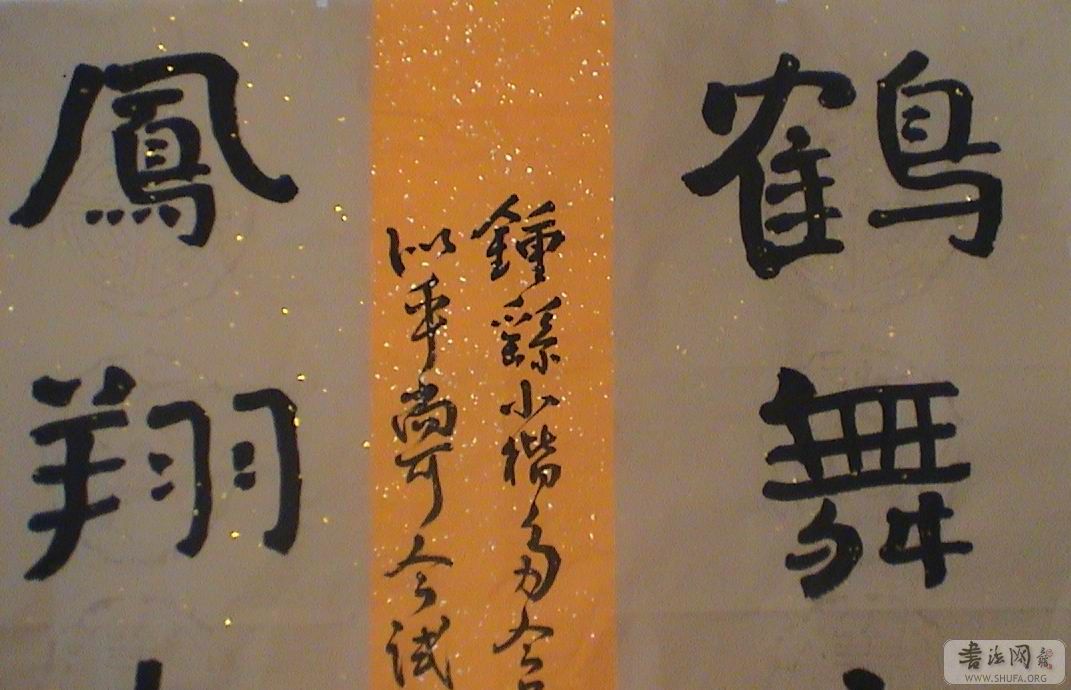 鶴舞
鍾繇小楷多
似乎尚可今試
鳳翔
書法网
WWW.SHUFA.ORG